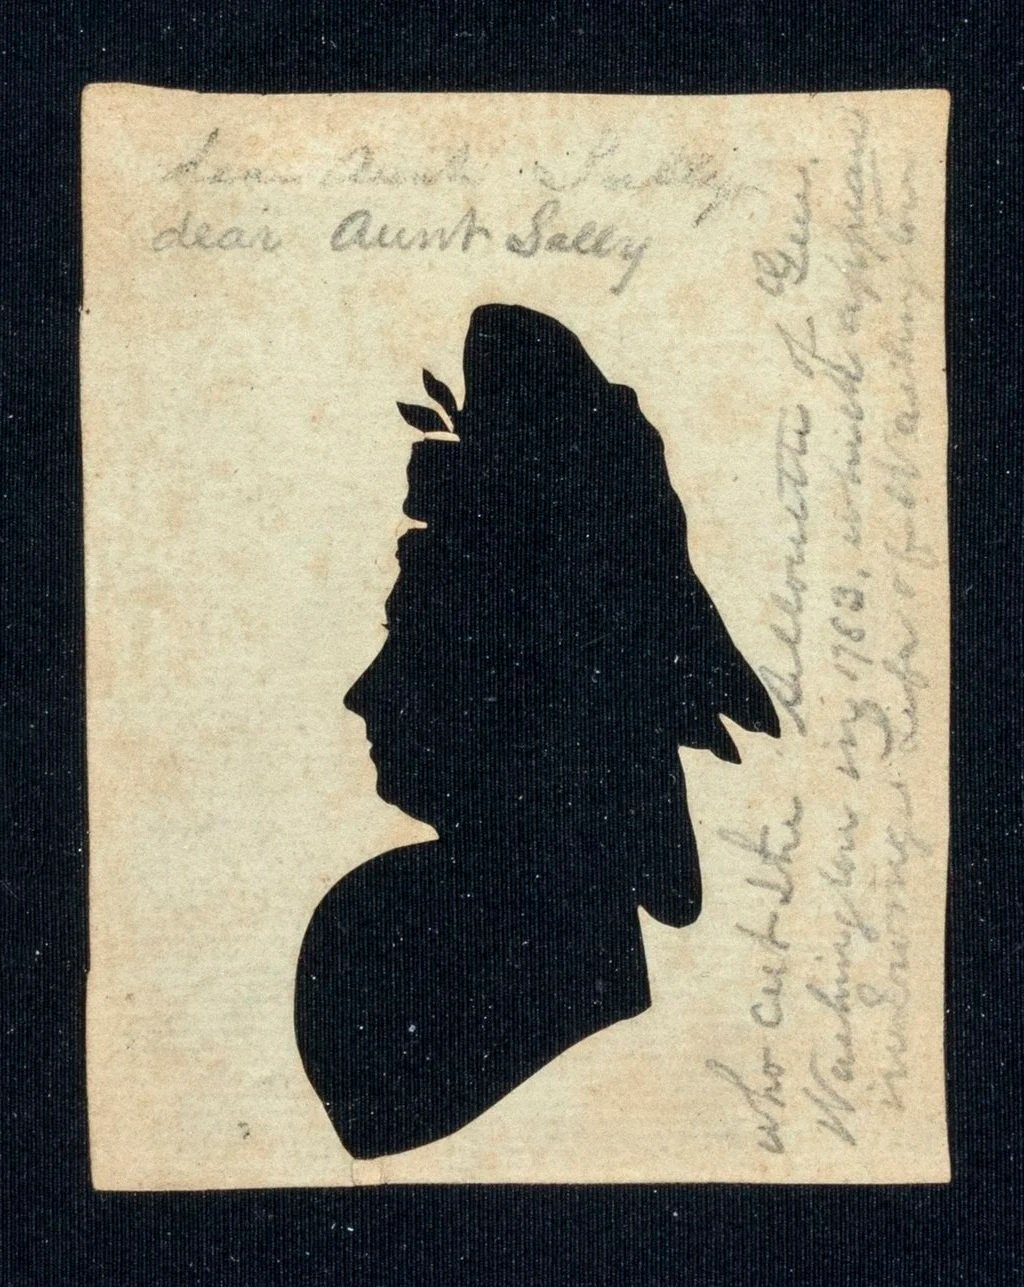 dear Aunt Sally
dear Aunt Sally
who cut the sillouette of Gen.
Washington in 1783, which appears
in Irving's Life of Washington